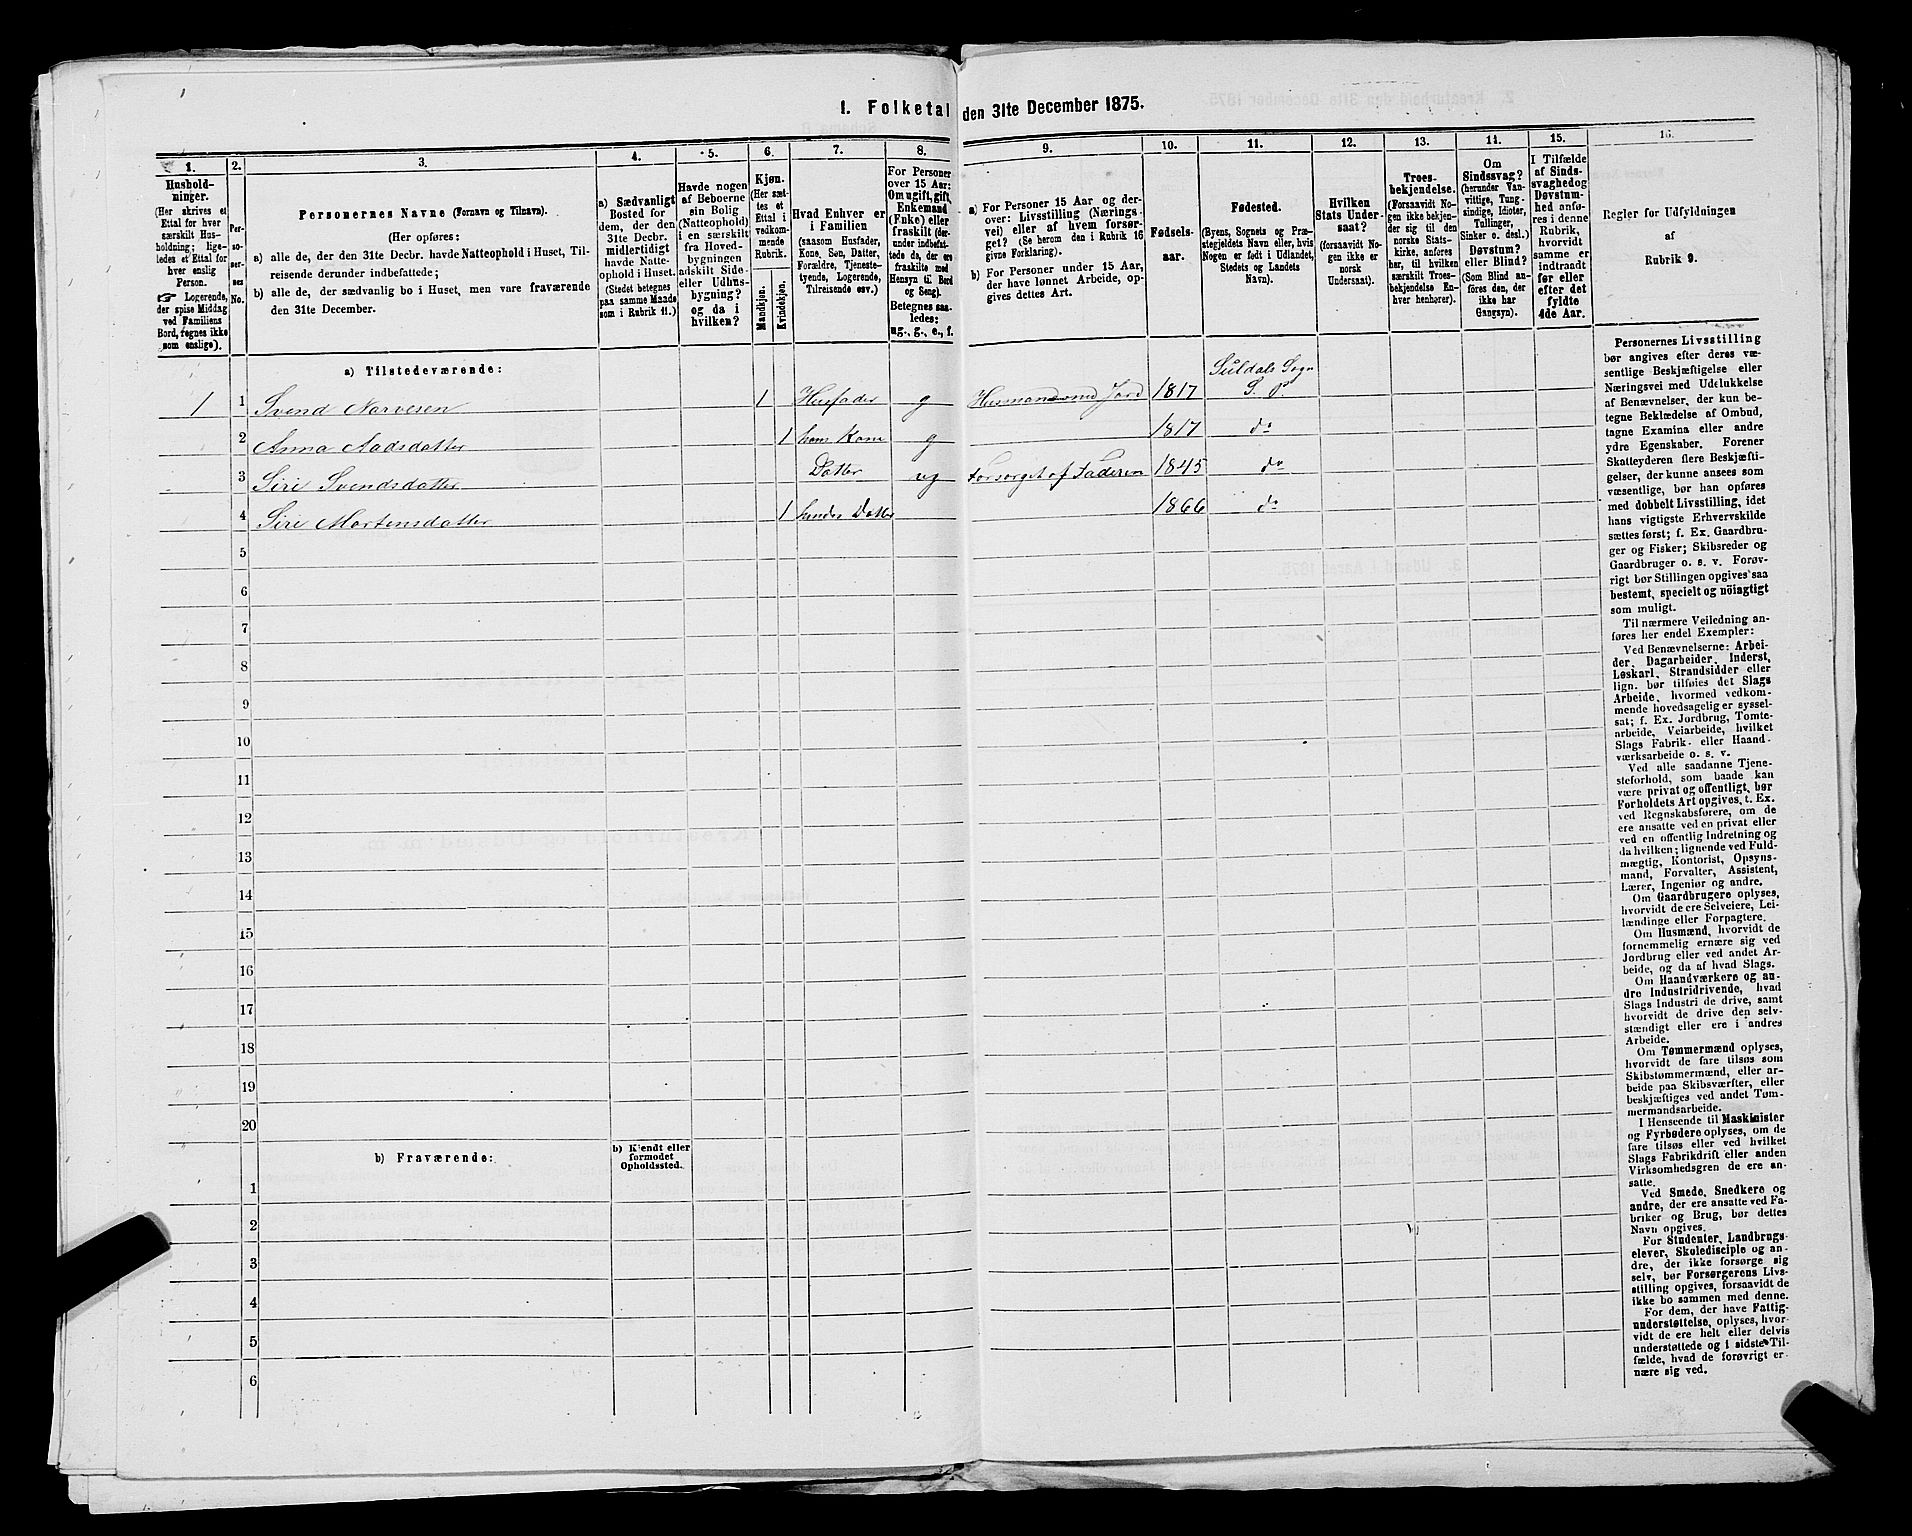 1. Folketal den 31te December 1875.
1. 2. 3. 4. 5. 6. 7. 8. 9. 10. 11. 12. 13. 14. 15. 16.
Hushold-
ninger.
(Her skrives et
Ettal for hver
særskilt Hus-
holdning; lige-
ledes et Ettal for
hver enslig
Person.
☞ Logerende,
der spise Middag
ved Familiens
Bord, regnes ikke
som enslige).
Per-
so-
ner-
nes
No.
Personernes Navne (Fornavn og Tilnavn).
(Her opføres:
a) alle de, der den 31te Decbr. havde Natteophold i Huset, Til-
reisende derunder indbefattede;
b) alle de, der sædvanlig bo i Huset, men vare fraværende
den 31te December.
a) Sædvanligt
Bosted for
dem, der den
31te Decbr.
midlertidigt
havde Natte-
ophold i Huset.
(Stedet betegnes
paa samme Maade
som i Rubrik 11.)
Havde nogen
af Beboerne
sin Bolig
(Natteophold)
i en særskilt
fra Hoved-
bygningen
adskilt Side-
eller Udhus-
bygning?
og da i
hvilken?
Kjøn.
(Her sæt-
tes et
Ettal i
vedkom-
mende
Rubrik.
Mandkjøn.
Kvindekjøn.
Hvad Enhver er
i Familien
(saasom Husfader,
Kone, Søn, Datter,
Forældre, Tjeneste-
tyende, Logerende,
Tilreisende osv.)
For Personer
over 15 Aar:
Om ugift, gift,
Enkemand
(Enke) eller
fraskilt (der-
under indbefat-
tede de, der ere
fraskilte med
Hensyn til Bord
og Seng).
Betegnes saa-
ledes:
ug., g., e., f.
a) For Personer 15 Aar og der-
over: Livsstilling (Nærings-
vei) eller af hvem forsør-
get? (Se herom den i Rubrik 16
givne Forklaring).
b) For Personer under 15 Aar,
der have lønnet Arbeide, op-
gives dettes Art.
Fødsels-
aar.
Fødested.
(Byens, Sognets og Præ-
stegjeldets Navn eller, hvis
Nogen er født i Udlandet,
Stedets og Landets
Navn).
Hvilken
Stats Under-
saat?
(forsaavidt No-
gen ikke er
norsk
Undersaat).
Troes-
bekjendelse.
(Forsaavidt No-
gen ikke bekjen-
der sig til den
norske Stats-
kirke, anføres
her, til hvilken
særskilt Troes-
bekjendelse En-
hver henhører).
Om
Sindssvag?
(herunder Van-
vittige, Tung-
sindige, Idioter,
Tullinger,
Sinker o. desl.)
Døvstum?
eller Blind?
(Som Blind an-
føres den, der
ikke har
Gangsyn).
I Tilfælde
af Sinds-
svaghed og
Døvstum-
hed anfø-
res i denne
Rubrik,
hvorvidt
samme er
indtraadt
før eller
efter det
fyldte
4de Aar.
Regler for Udfyldningen
af
Rubrik 9.
a) Tilstedeværende:
Suldals Sogn
1 1 Svend Narvesen 1 Husfader g Husmand med Jord 1817 S. P.
2 Anna Aadsdatter 1 hans Kone g 1817 do
3 Siri Svendsdatter Datter ug Forsørget af Faderen 1845 do
4 Siri Mortensdatter 1 hendes Datter 1866 do
5
6
7
8
9
10
11
12
13
14
15
16
17
18
19
20
b) Fraværende:
b) Kjendt eller
formodet
Opholdssted.
1
2
3
4
5
6
Personernes Livsstilling
bør angives efter deres væ-
sentlige Beskjæftigelse eller
Næringsvei med Udelukkelse
af Benævnelser, der kun be-
tegne Beklædelse af Ombud,
tagne Examina eller andre
ydre Egenskaber. Forener
Skatteyderen flere Beskjæfti-
gelser, der kunne ansees som
væsentlige, bør han opføres
med dobbelt Livsstilling, idet
hans vigtigste Erhvervskilde
sættes først; f. Ex. Gaardbru-
ger og Fisker; Skibsreder og
Gaardbruger o. s. v. Forøv-
rigt bør Stillingen opgives saa
bestemt, specielt og nöiagtigt
som muligt.
Til nærmere Veiledning an-
føres her endel Exempler:
Ved Benævnelserne: Arbei-
der, Dagarbeider, Inderst,
Løskarl, Strandsidder eller
lign. bør tilføies det Slags
Arbeide, hvormed vedkom-
mende hovedsagelig er syssel-
sat; f. Ex. Jordbrug, Tomte-
arbeide, Veiarbeide, hvilket
Slags Fabrik- eller Haand-
værksarbeide o. s. v.
Ved alle saadanne Tjene-
steforhold, som baade kan
være privat og offentligt, bør
Forholdets Art opgives, t. Ex.
ved Regnskabsførere, om de
ere ansatte ved en privat eller
ved en offentlig Indretning og
da hvilken; lignende ved Fuld-
mægtig, Kontorist, Opsyns-
mand, Forvalter, Assistent,
Lærer, Ingeniør og andre.
Om Gaardbrugere oplyses,
hvorvidt de ere Selveiere, Lei-
lændinge eller Forpagtere.
Om Husmænd, hvorvidt de
fornemmelig ernære sig ved
Jordbrug eller ved andet Ar-
beide, og da af hvad Slags.
Om Haandværkere og an-
dre Industridrivende, hvad
Slags Industri de drive, samt
hvorvidt de drive den selv-
stændigt eller ere i andres
Arbeide.
Om Tømmermænd oplyses,
hvorvidt de fare tilsøs som
Skibstømmermænd, eller ar-
beide paa Skibsværfter, eller
beskjæftiges ved andet Tøm-
mermandsarbeide.
I Henseende til Maskinister
og Fyrbødere oplyses, om de
fare tilsøs eller ved hvilket
Slags Fabrikdrift eller anden
Virksomhedsgren de ere an-
satte.
Ved Smede, Snedkere og
andre, der ere ansatte ved Fa-
briker og Brug, bør dettes
Navn opgives.
For Studenter, Landbrugs-
elever, Skoledisciple og an-
dre, der ikke forsørge sig
selv, bør Forsørgerens Livs-
stilling opgives, forsaavidt de
ikke bo sammen med denne.
For dem, der have Fattig-
understøttelse, oplyses, hvor-
vidt de ere helt eller delvis
understøttede og i sidste Til-
fælde, hvad de forøvrigt er-
nære sig ved.